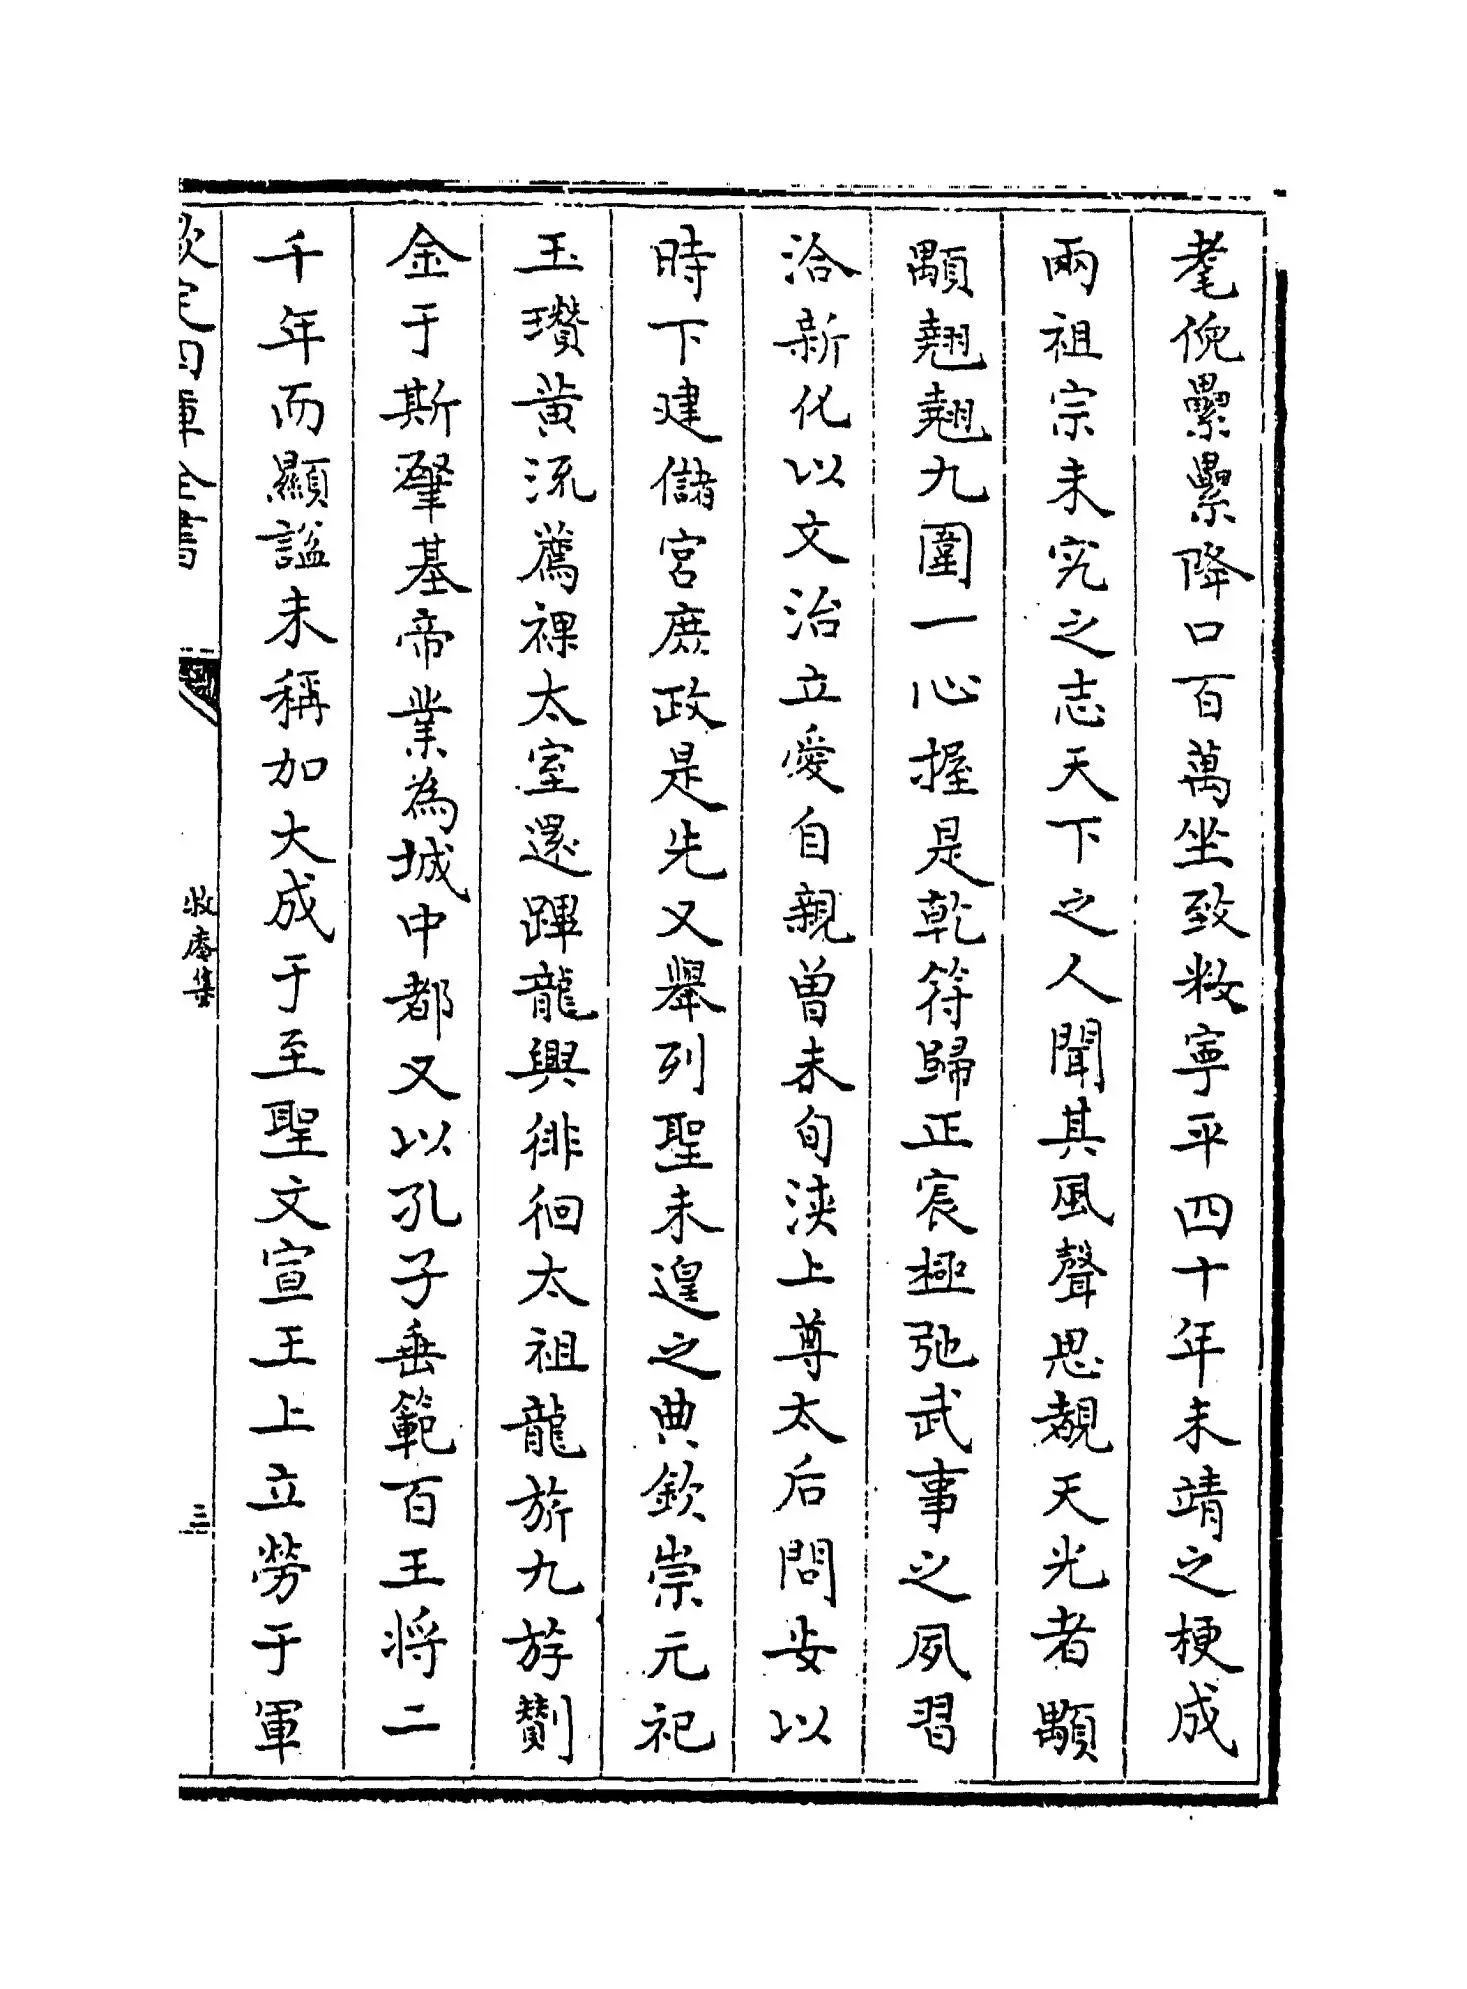 耄倪纍纍降口百萬坐致敉寧平四十年未靖之梗成
兩祖宗未究之志天下之人聞其風聲思覩天光者顒
顒翹翹九圍一心握是乾符歸正宸極弛武事之夙習
洽新化以文治立愛自親曾未旬浹上尊太后問安以
時下建儲宮庶政是先又舉列聖未遑之典欽崇元祀
玉瓚黃流薦祼太室還蹕龍興徘徊太祖龍旂九斿劗
金于斯肇基帝業為城中都又以孔子垂範百王將二
千年而顯謚未稱加大成于至聖文宣王上立勞于軍
欽定四庫全書
牧庵集
三